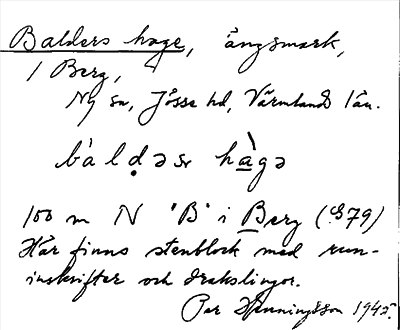 Balders hage, ängsmark,
i Berg,
Ny sn, Jösse hd, Värmlands län.
bàldəsr hàgə
100 m N "B" i Berg (G79)
Här finns stenblock med run-
inskrifter och drakslingor.
Per Henningsson 1945.